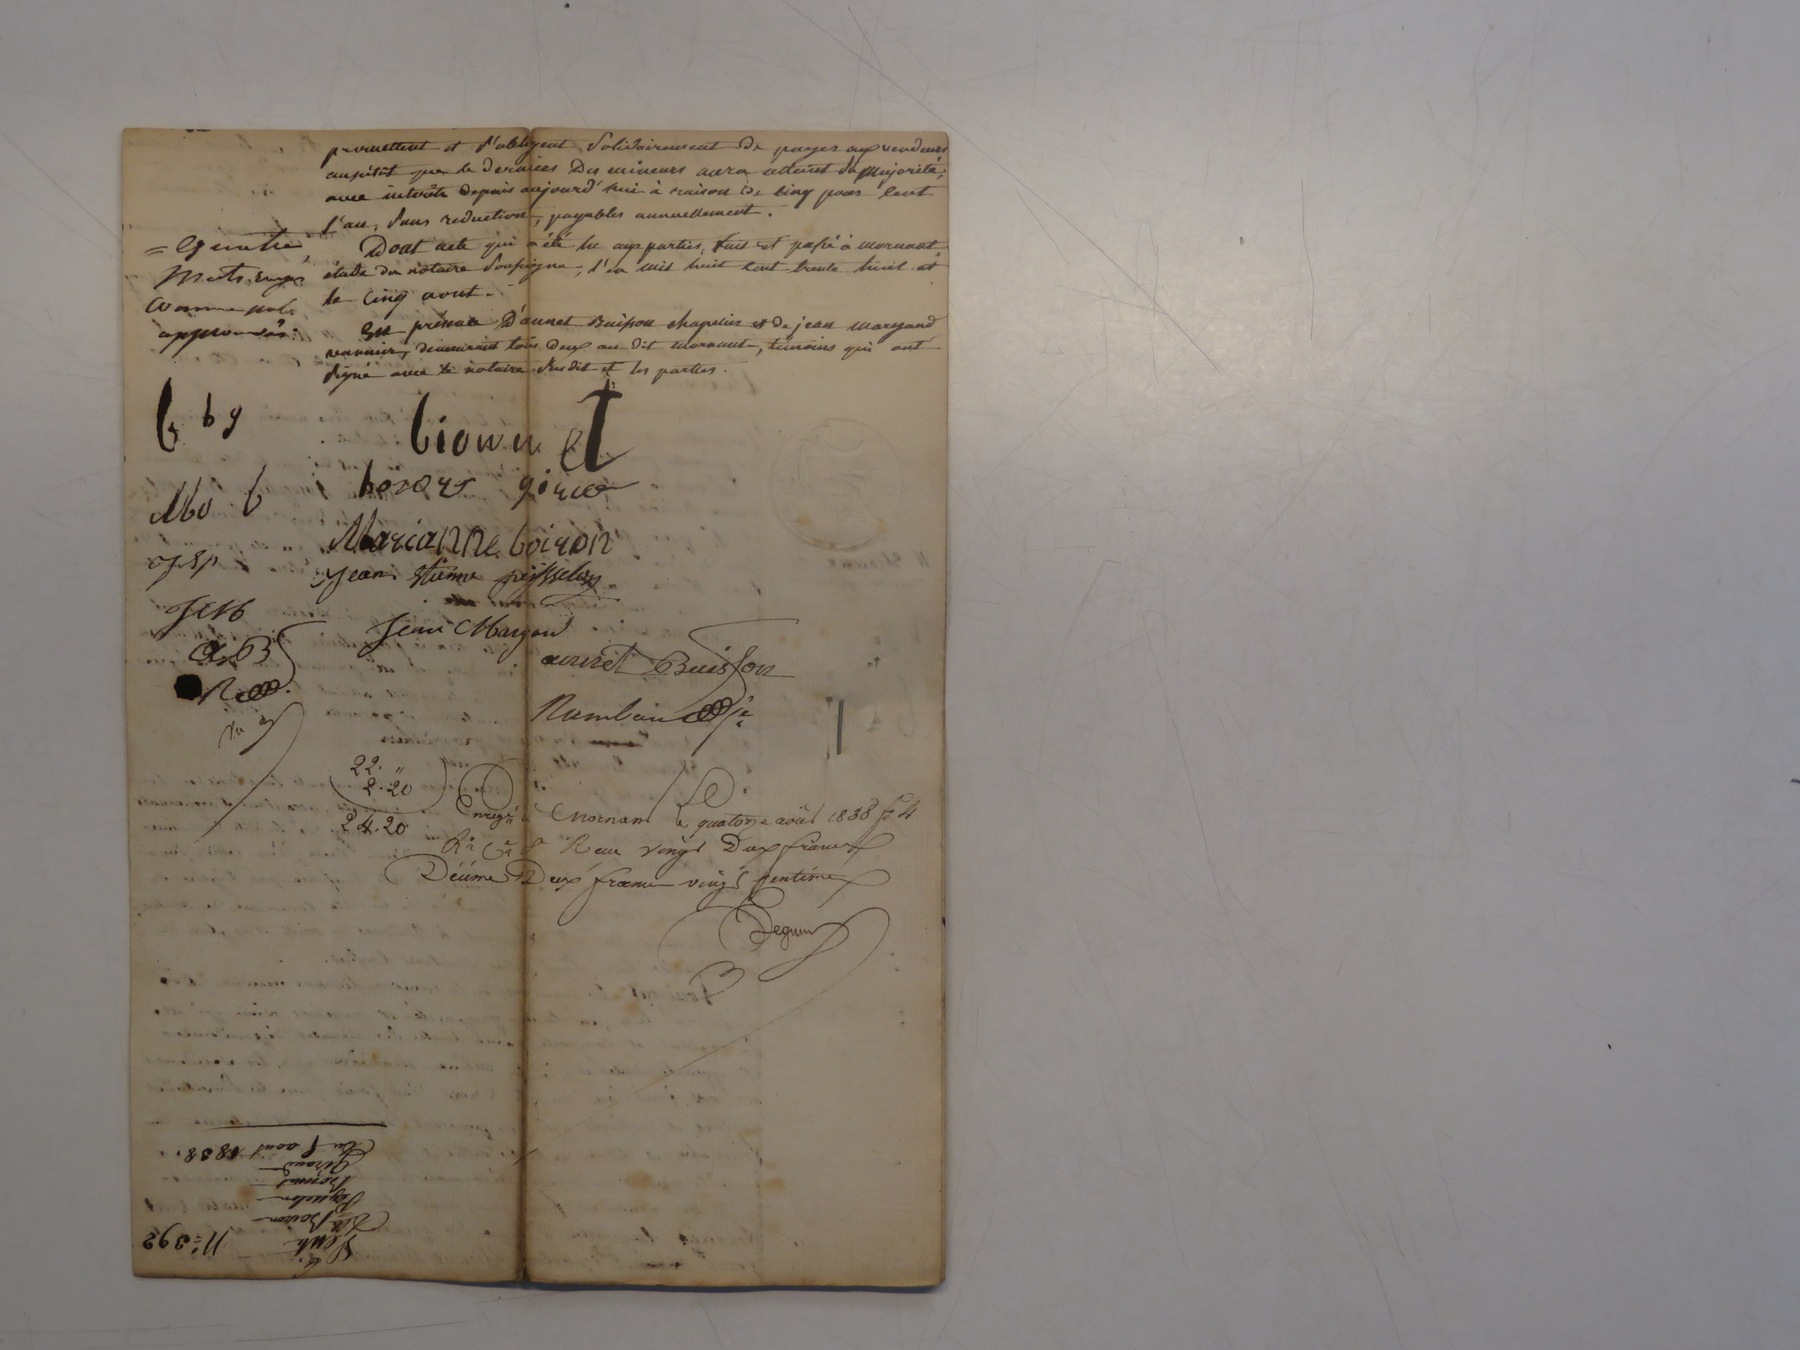 promettent et s'obligent solidairement de payer aux vendeurs
aussitôt que le dernier des mineurs aura atteint sa majorité,
avec intérêts depuis aujourd'hui à raison de cinq pour cent
l'an, sans reduction, payables annuellement.
Dont acte qui a été lu aux parties, fait et passé à mornant,
étude du notaire soussigné, l'an mil huit cent trente huit et
le cinq aout.
En présence d'annet Buisson chapelier et de jean margand
demeurant tous deux au dit mornant, témoins qui ont
signé avec le notaire susdit et les parties.
= 
mots rayés
comme nuls
approuvés.
b b g
Mb b
JEP
JM
AB
Marianne boiron
jean Etienne peysselon
Jean Margand
annet Buisson
22. "
2.20
24.20
Enregré à Mornant le quatorze août 1838 fo 4
Reçu vingt Deux francs
Décime Deux francs vingt centimes
N° 392
Vente
Boiron
Peysselon
Giraud
Du 5 aout 1838.